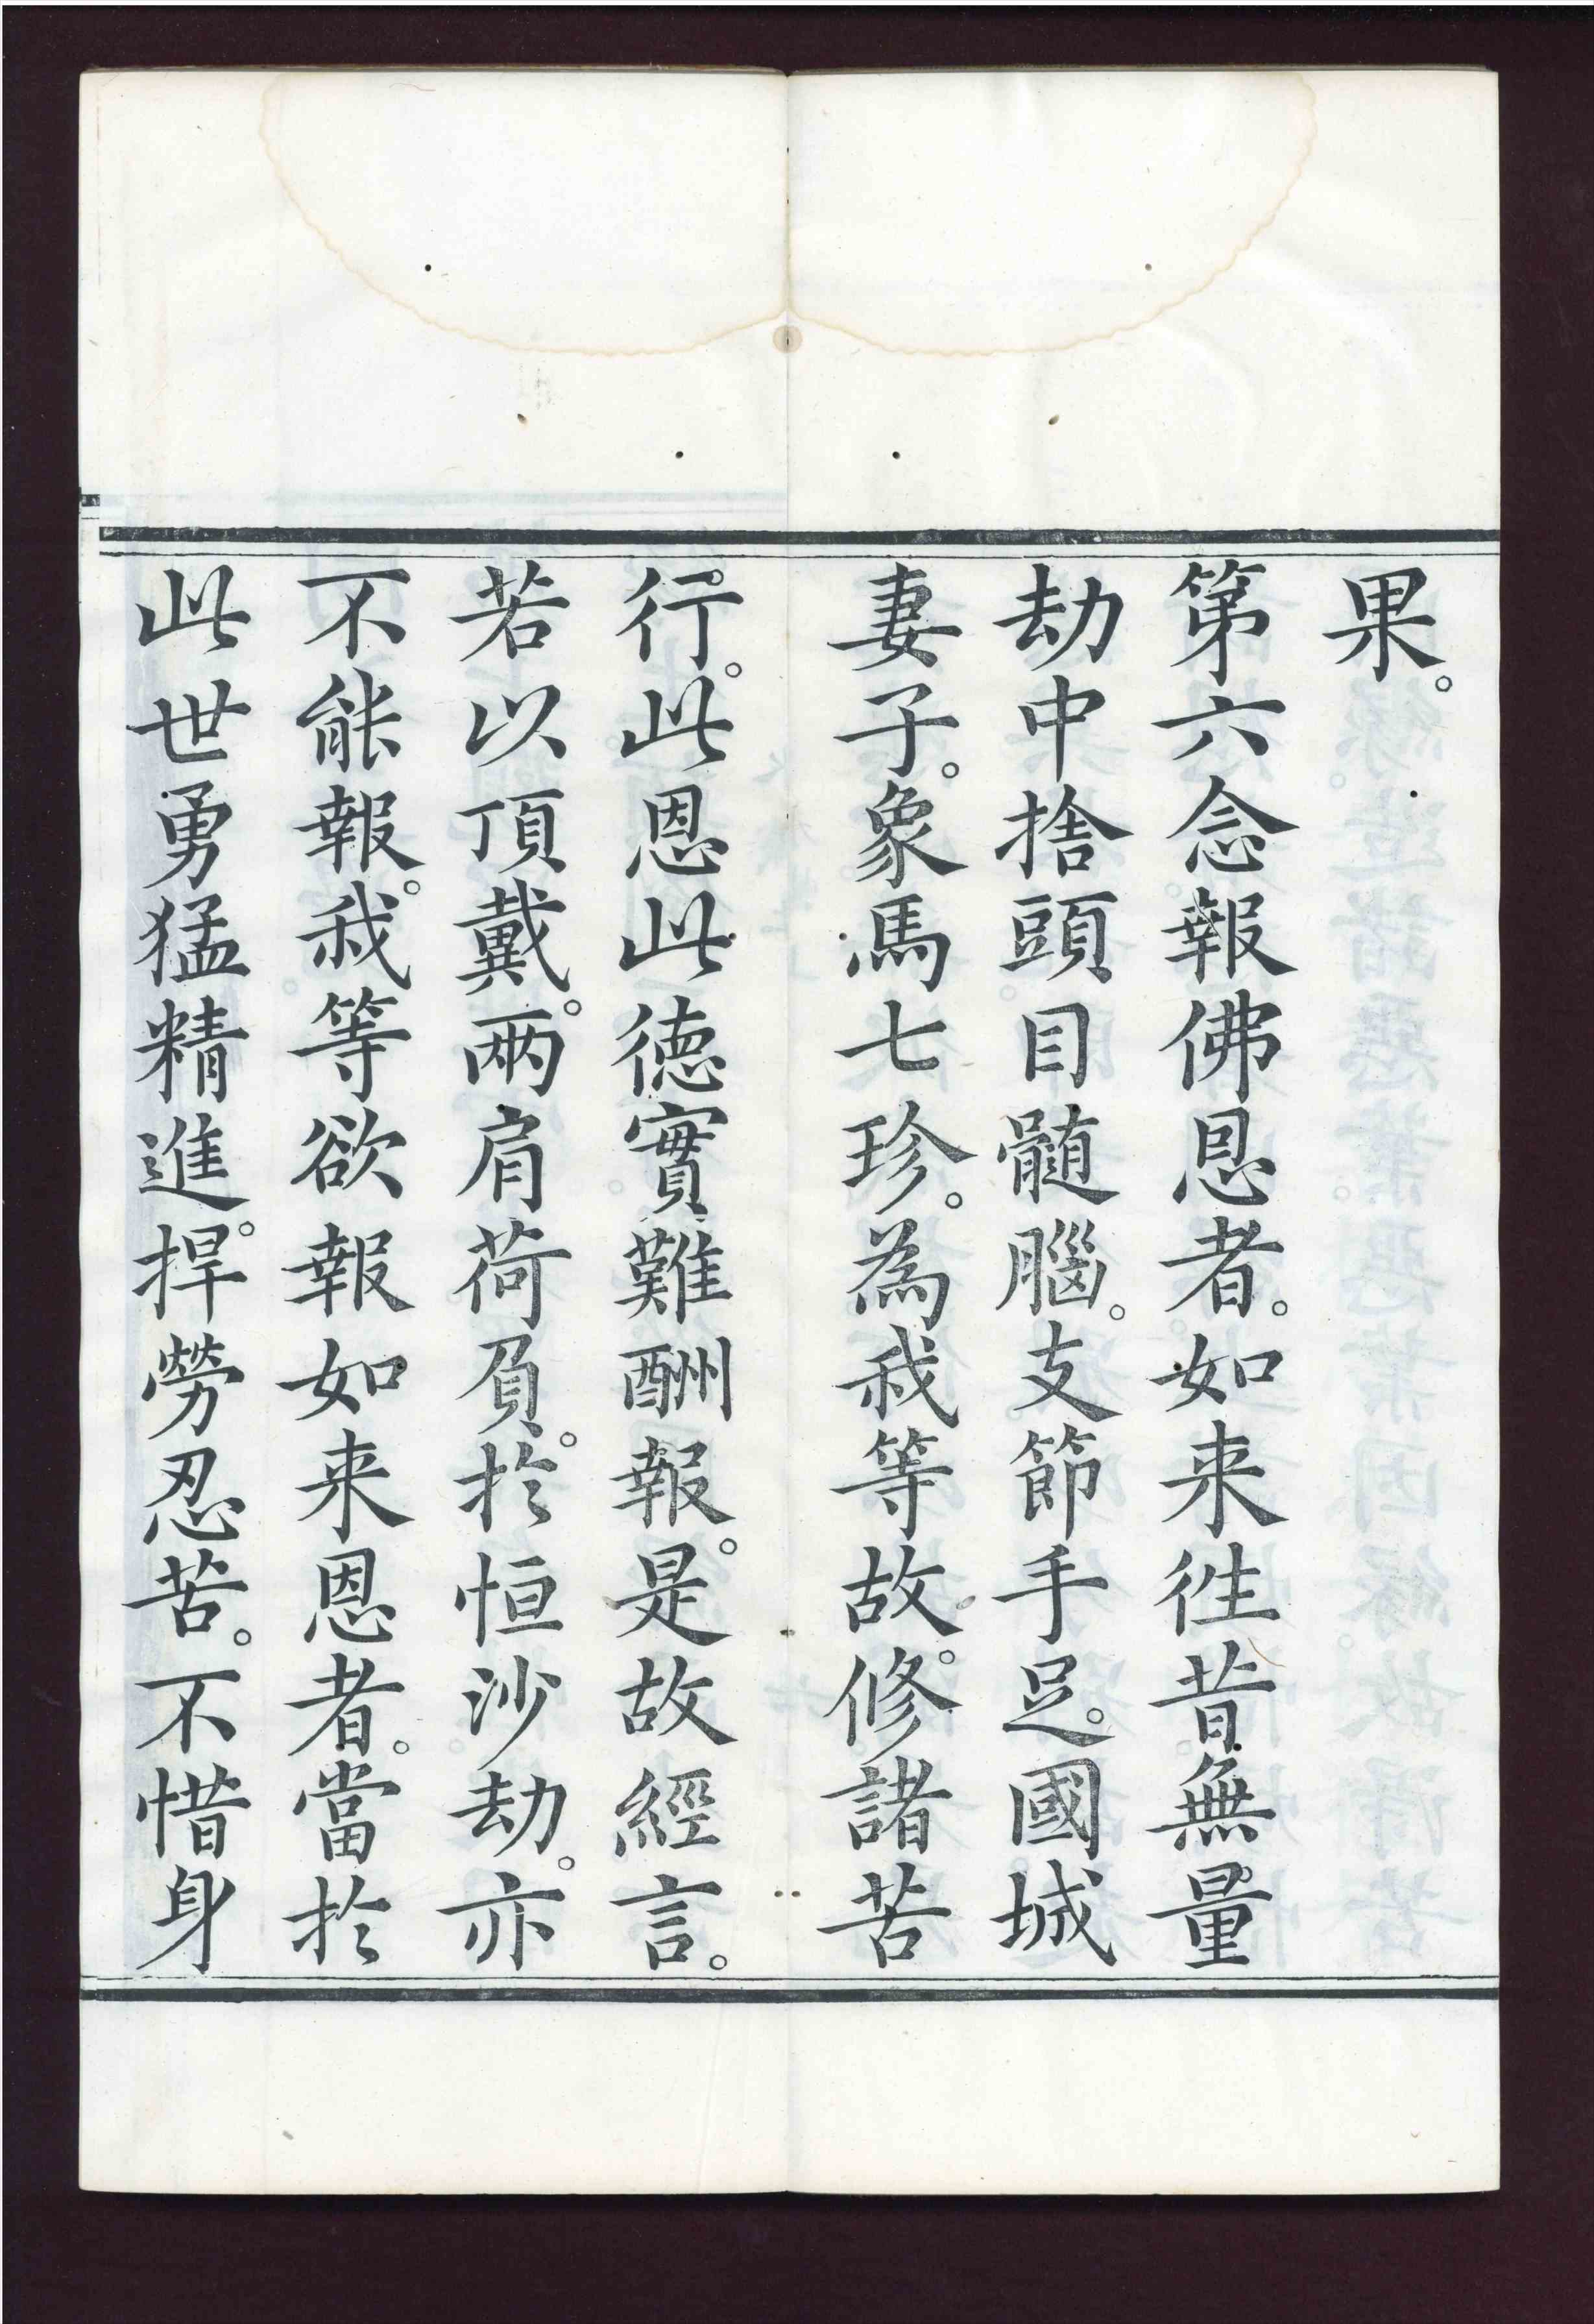 果。
第六念報佛恩者。如来徃昔無量
劫中捨頭目髓腦。支節手足。國城
妻子。象馬七珍。為我等故。修諸苦
行。此恩此德實難酬報。是故經言。
若以頂戴。兩肩荷負。於恒沙劫。亦
不能報。我等欲報如来恩者。當於
此世勇猛精進。捍勞忍苦。不惜身